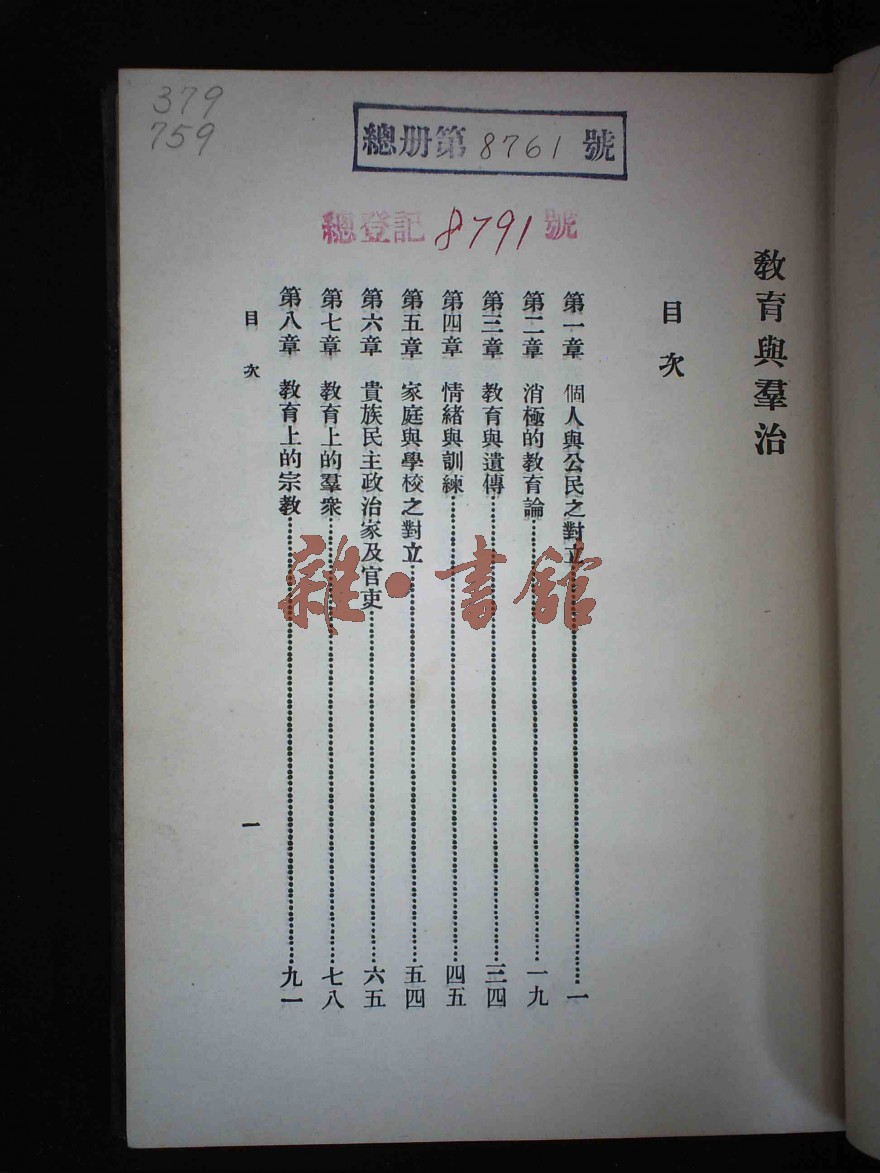 379
759
總册第8761號
總登記8791號
教育與羣治
目次
第一章 個人與公民之對立……一
第二章 消極的教育論……一九
第三章 教育與遺傳……三四
第四章 情緒與訓練……四五
第五章 家庭與學校之對立……五四
第六章 貴族民主政治家及官吏……六五
第七章 教育上的羣衆……七八
第八章 教育上的宗教……九一
目次
一
雜·書館